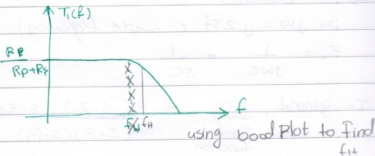 T₁(f)
RP
RP+RS
fH
f
using bood Plot to find
fH